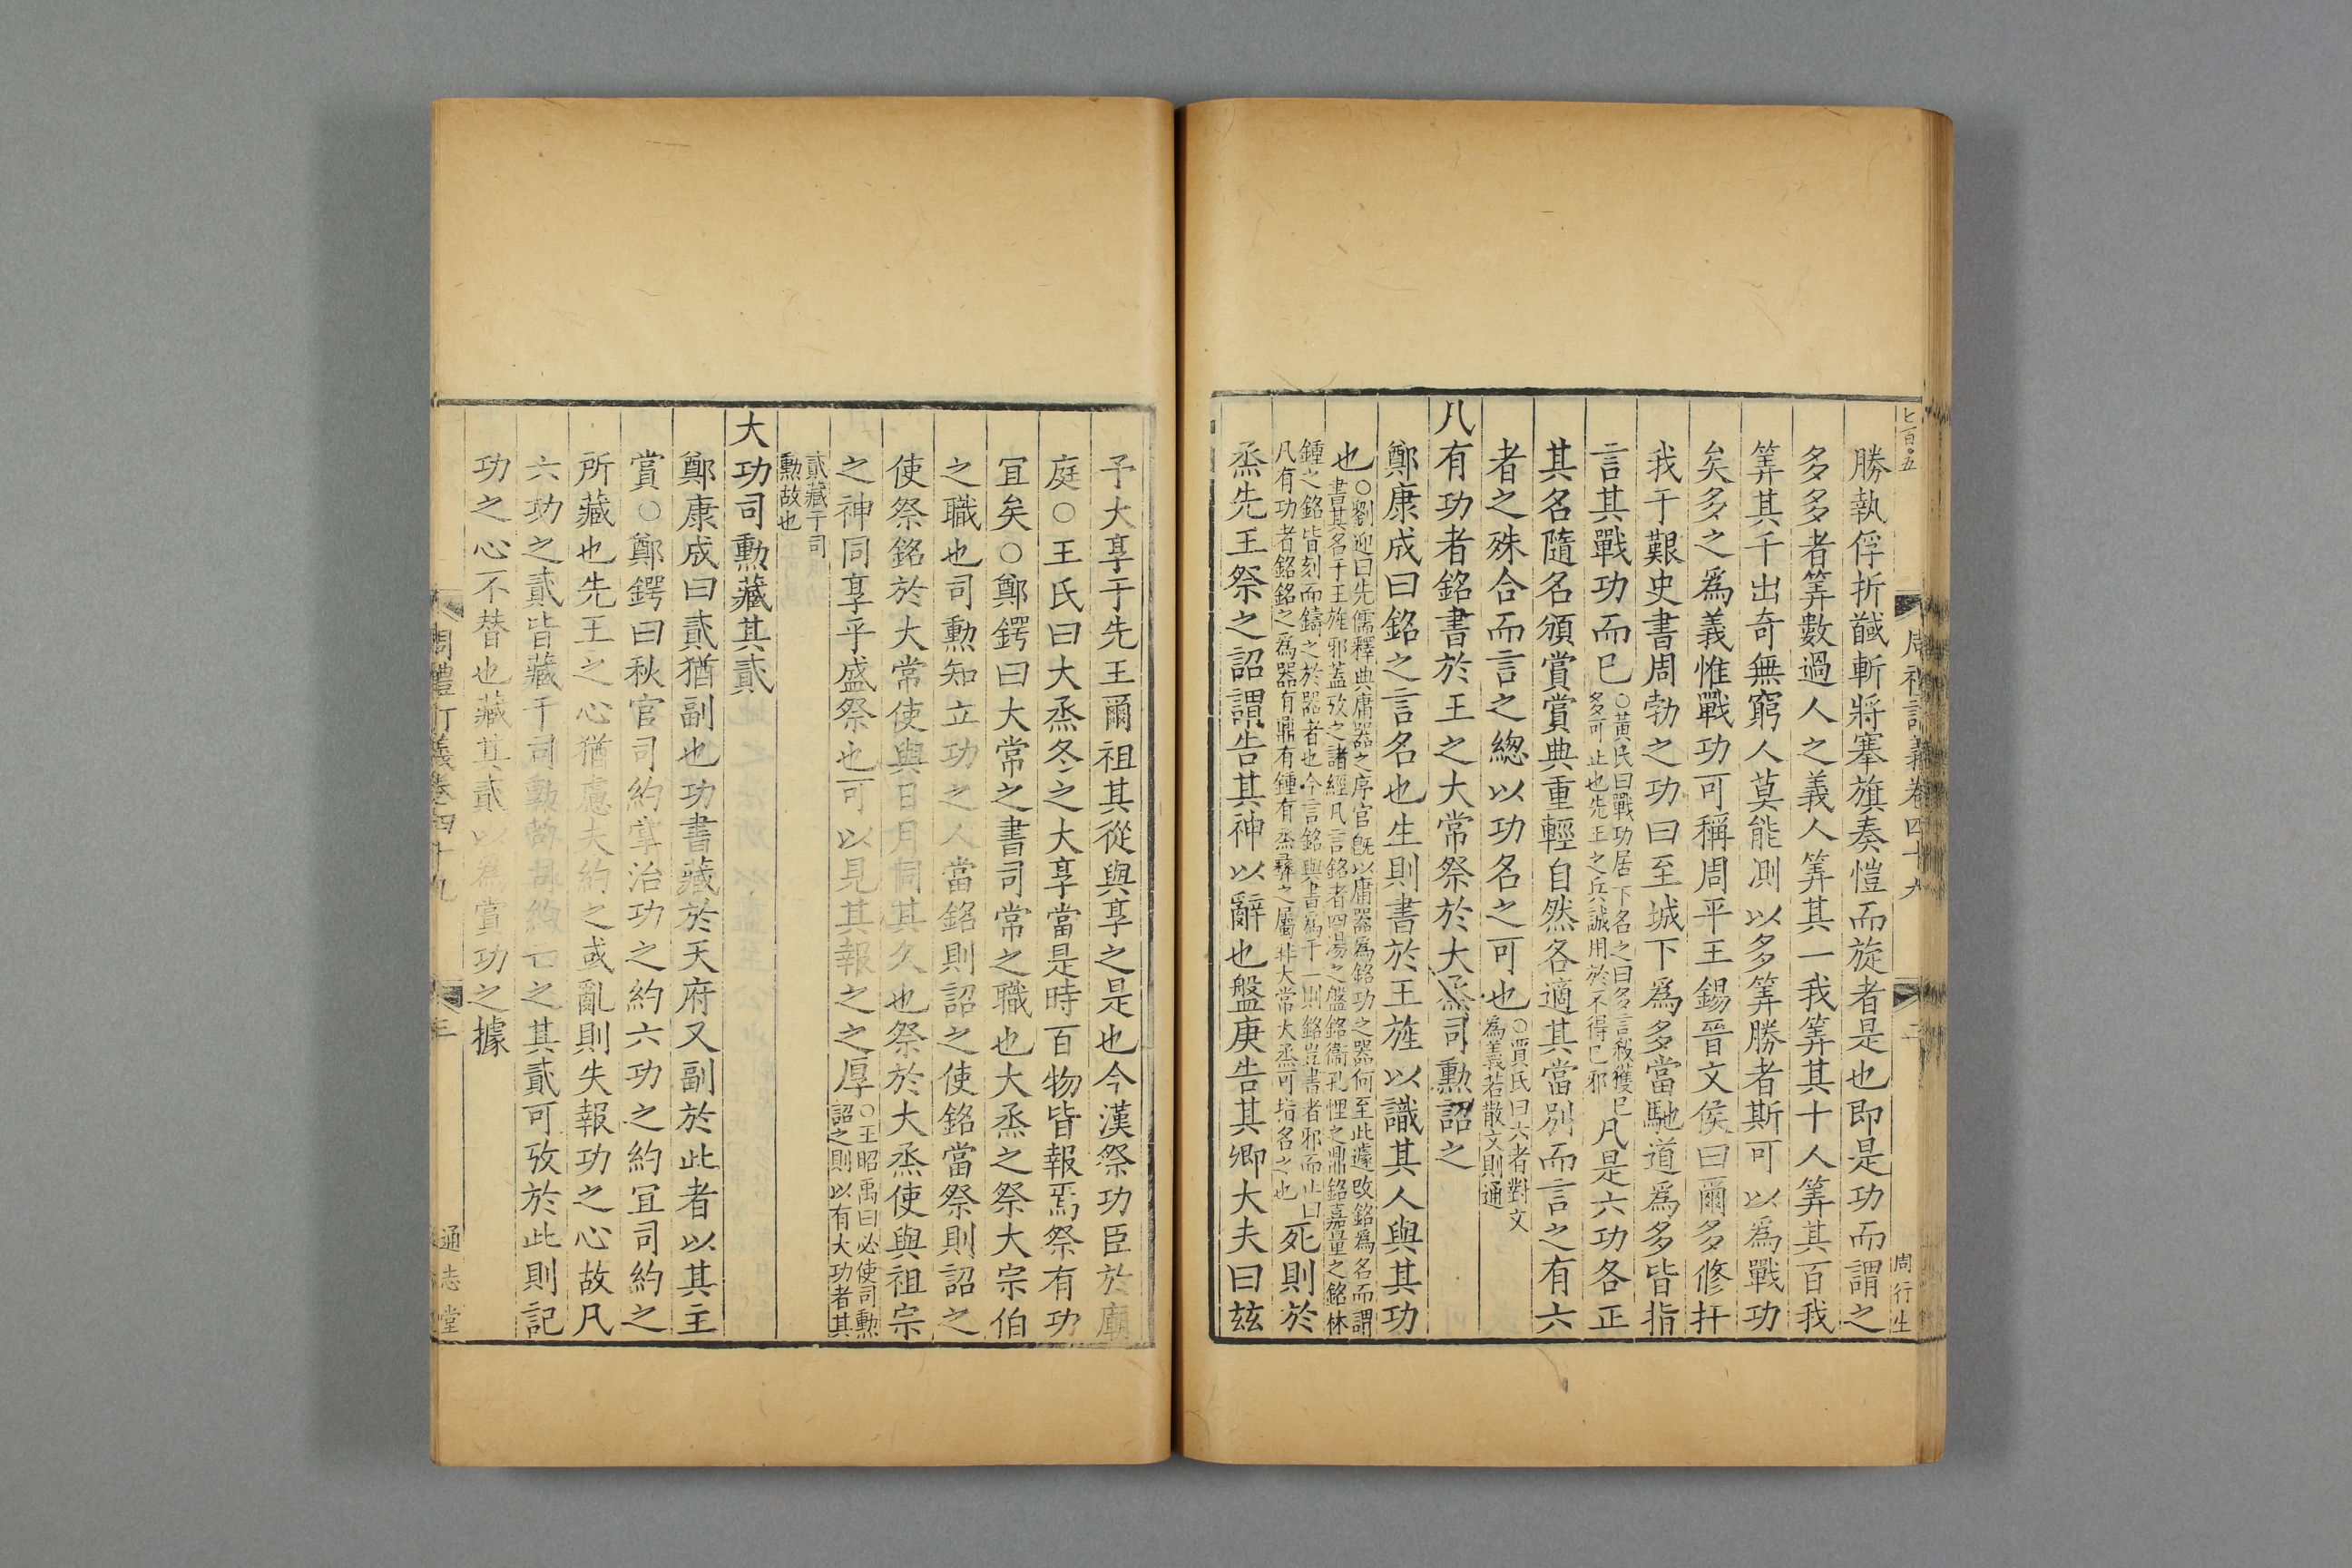 周禮訂義卷四十九
二
周行生
勝執俘折馘斬將搴旗奏愷而旋者是也即是功而謂之
多多者筭數過人之義人筭其一我筭其十人筭其百我
筭其千出奇無窮人莫能測以多筭勝者斯可以爲戰功
矣多之爲義惟戰功可稱周平王錫晉文侯曰爾多修扞
我于艱史書周勃之功曰至城下爲多當馳道爲多皆指
言其戰功而已○黃氏曰戰功居下名之曰多言殺獲已多可止也先王之兵誠用於不得已邪凡是六功各正
其名隨名頒賞賞典重輕自然各適其當別而言之有六
者之殊合而言之緫以功名之可也○賈氏曰六者對文爲義若散文則通
凡有功者銘書於王之大常祭於大烝司勳詔之
鄭康成曰銘之言名也生則書於王旌以識其人與其功
也○劉迎曰先儒釋典庸器之序官旣以庸器爲銘功之器何至此遽改銘爲名而謂書其名于王旌邪蓋攷之諸經凡言銘者四湯之盤銘衞孔悝之鼎銘嘉量之銘休
鍾之銘皆刻而鑄之於器者也今言銘與書爲干一則銘豈書者邪而止曰凡有功者銘銘之爲器有鼎有鍾有烝彝之屬非大常大烝可指名之也死則於
烝先王祭之詔謂告其神以辭也盤庚告其卿大夫曰玆
予大享于先王爾祖其從與享之是也今漢祭功臣於廟
庭○王氏曰大烝冬之大享當是時百物皆報焉祭有功
宜矣○鄭鍔曰大常之書司常之職也大烝之祭大宗伯
之職也司勳知立功之人當銘則詔之使銘當祭則詔之
使祭銘於大常使與日月同其久也祭於大烝使與祖宗
之神同享乎盛祭也可以見其報之之厚○王昭禹曰必使司勳詔之則以有大功者其
貳藏于司勳故也
大功司勳藏其貳
鄭康成曰貳猶副也功書藏於天府又副於此者以其主
賞○鄭鍔曰秋官司約掌治功之約六功之約宜司約之
所藏也先王之心猶慮夫約之或亂則失報功之心故凡
六功之貳皆藏于司勳苟司約亡之其貳可攷於此則記
功之心不替也藏其貳以爲賞功之據
周禮訂義卷四十九
三
通志堂